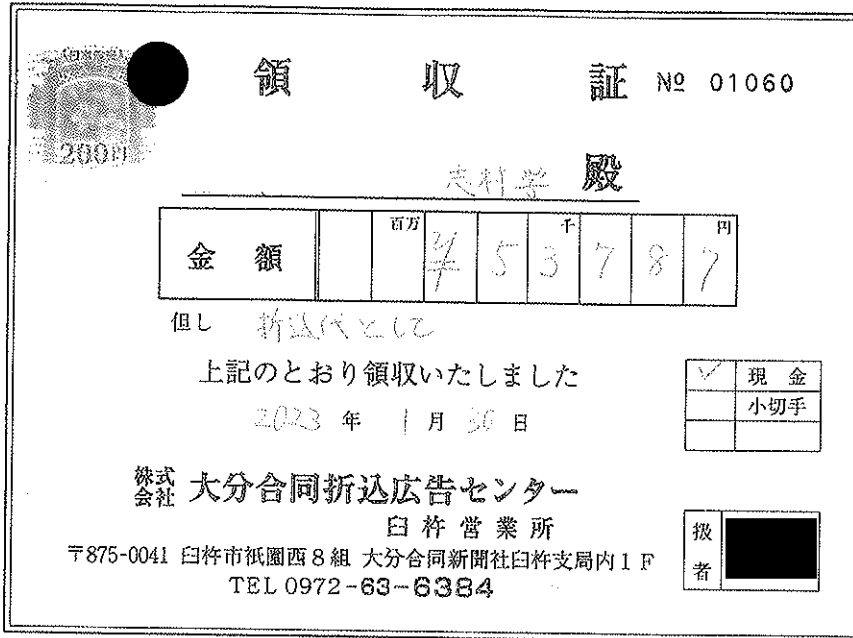 領収証 № 01060
200円
志村学 殿
金額 百万 千 円
¥53787
但し 折込代として
上記のとおり領収いたしました
2023年1月30日
✓ 現金
小切手
株式会社 大分合同折込広告センター
臼杵営業所
〒875-0041 臼杵市祇園西8組 大分合同新聞社臼杵支局内1F
TEL 0972-63-6384
扱者